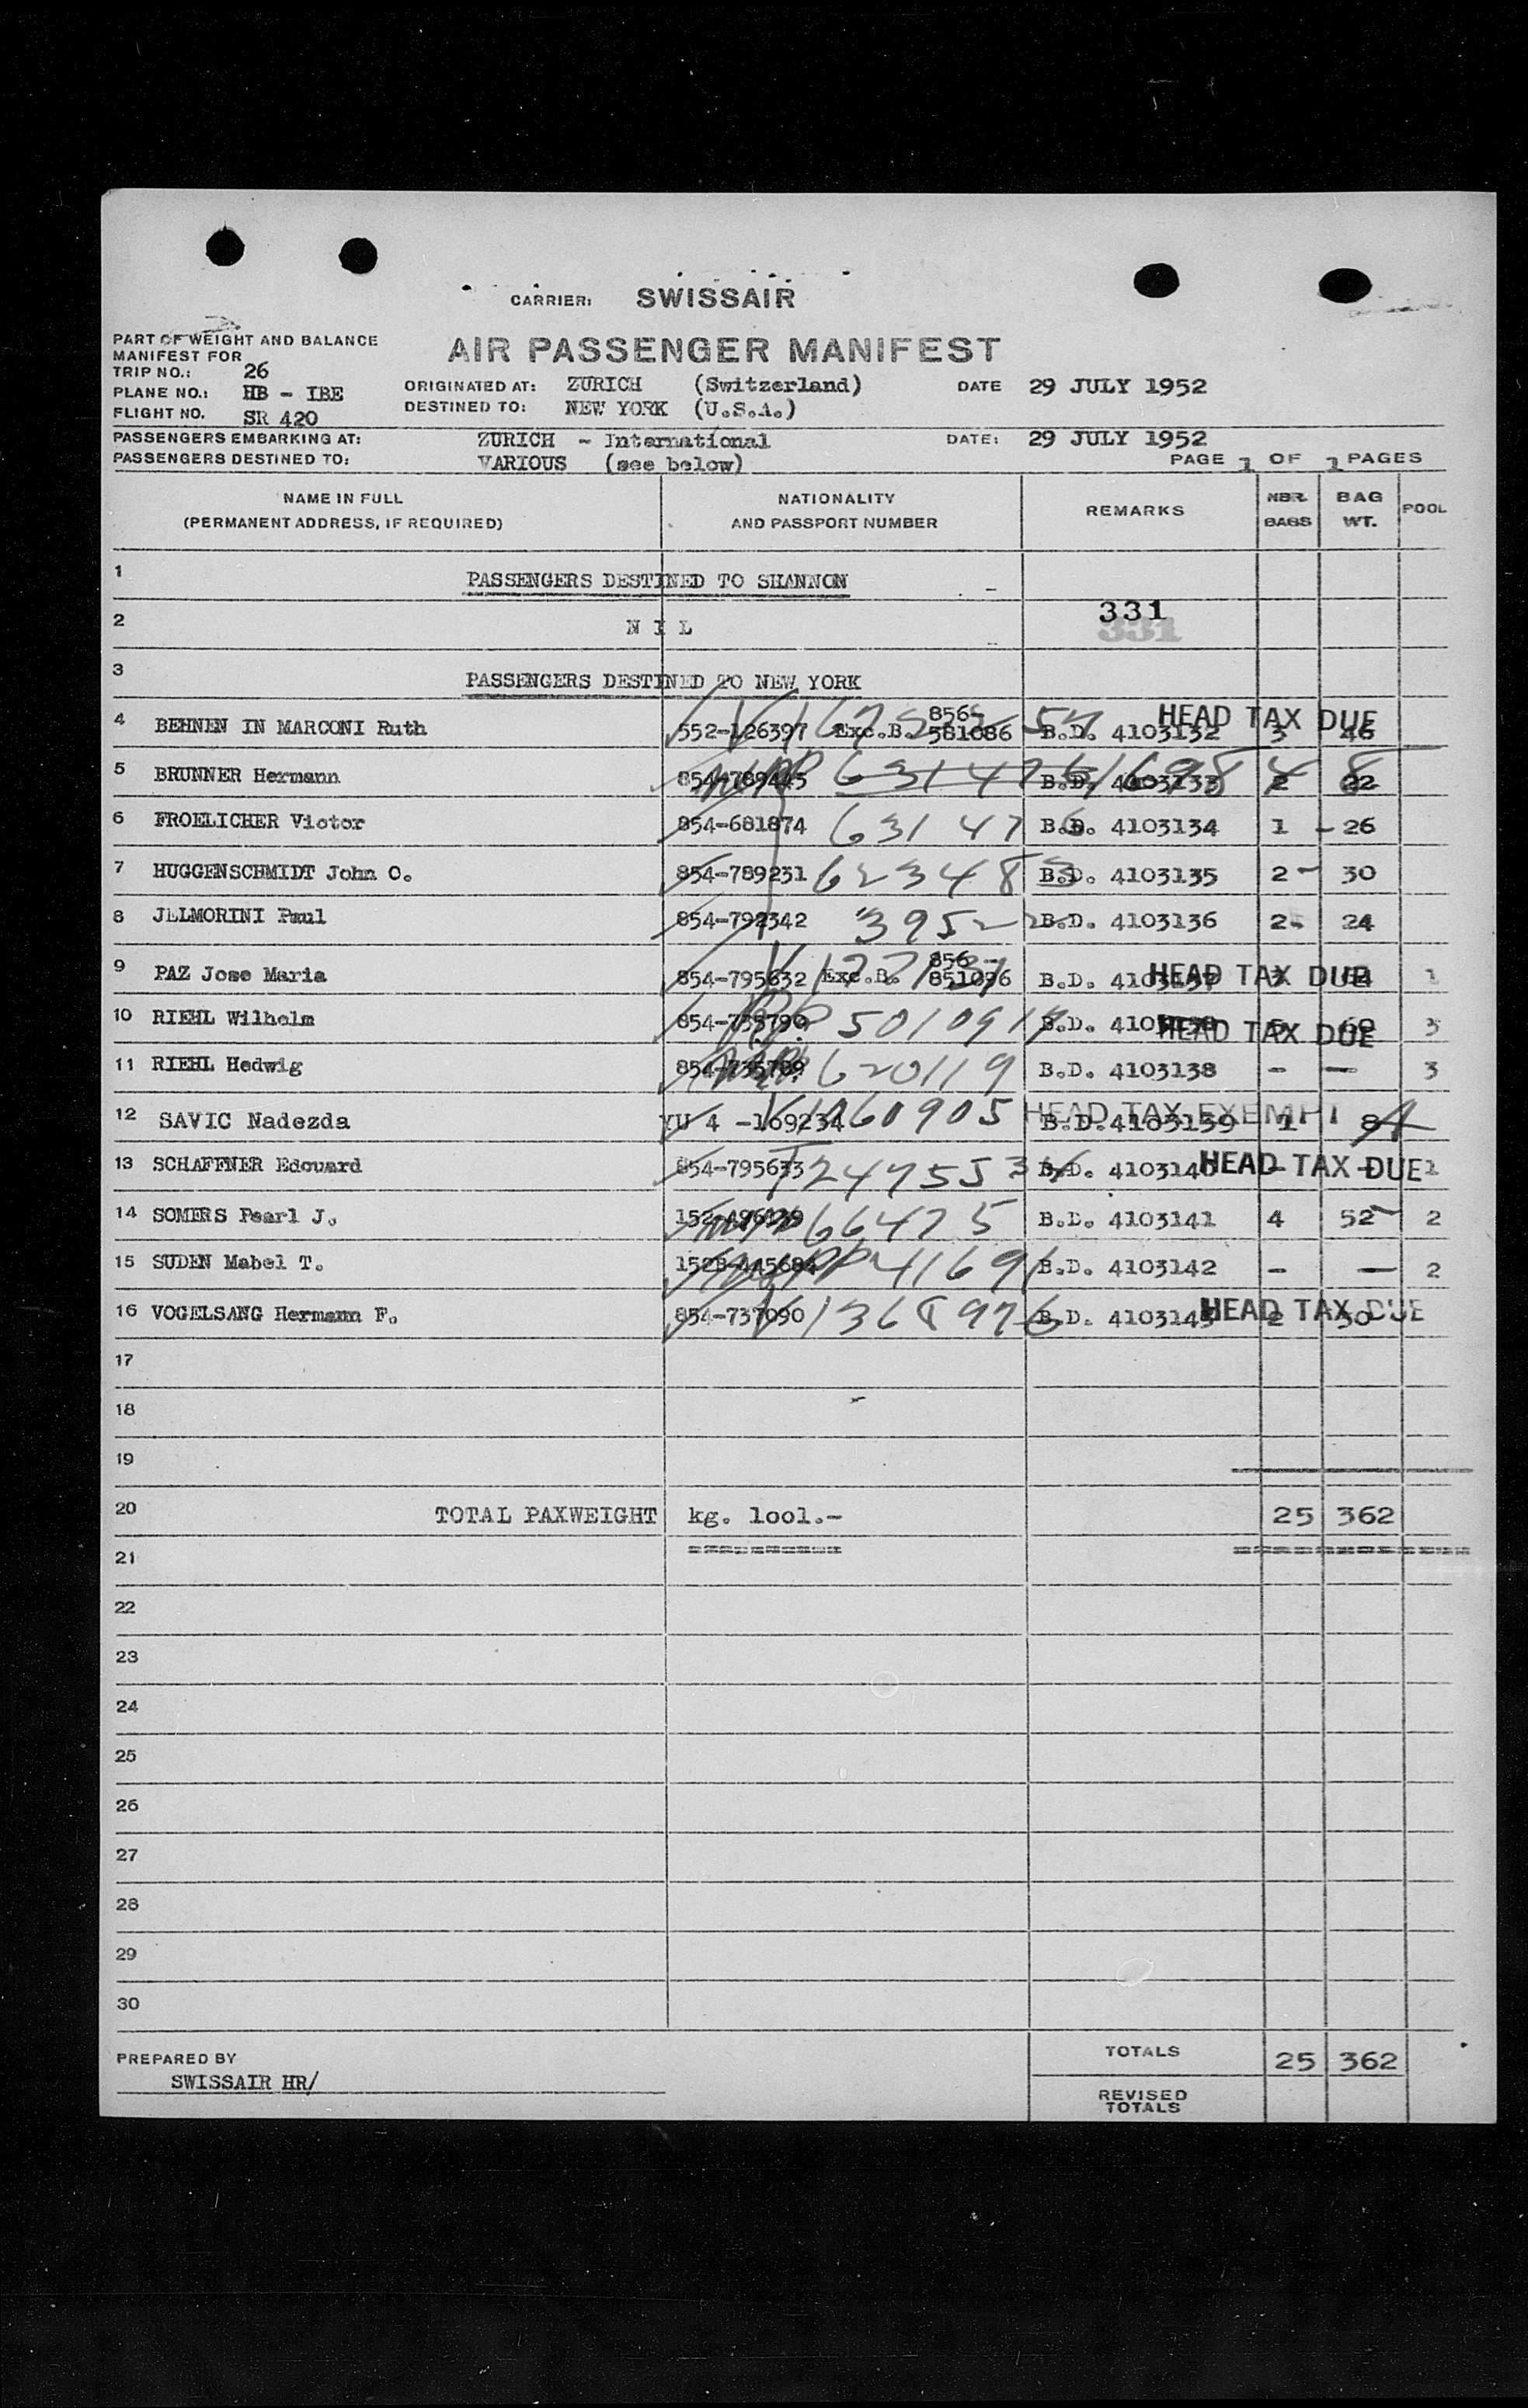 CARRIER: SWISSAIR
PART OF WEIGHT AND BALANCE
MANIFEST FOR
AIR PASSENGER MANIFEST
TRIP NO.: 26
PLANE NO.: HB - IBE ORIGINATED AT: ZURICH (Switzerland) DATE 29 JULY 1952
FLIGHT NO. SR 420 DESTINED TO: NEW YORK (U.S.A.)
PASSENGERS EMBARKING AT: ZURICH - International DATE: 29 JULY 1952
PASSENGERS DESTINED TO: VARIOUS (see below) PAGE 1 OF 1 PAGES
NAME IN FULL NATIONALITY REMARKS NBR. BAG POOL
(PERMANENT ADDRESS, IF REQUIRED) AND PASSPORT NUMBER BAGS WT.
1 PASSENGERS DESTINED TO SHANNON -
331
2 N I L 331
3 PASSENGERS DESTINED TO NEW YORK
4 BEHNEN IN MARCONI Ruth 552-126397 Exc.B. 856- 581086 B.D. 4103132 HEAD TAX DUE 3 46
5 BRUNNER Hermann 854-789445 B.D. 4103133 2 22
6 FROELICHER Victor 854-681874 631 47 B.D. 4103134 1 - 26
7 HUGGENSCHMIDT John O. 854-789231 62348 B.D. 4103135 2 - 30
8 JELMORINI Paul 854-792342 3952 B.D. 4103136 2 24
9 PAZ Jose Maria 854-795632 Exc.B. 856 - 851096 B.D. 4103137 HEAD TAX DUE 3 1
10 RIEHL Wilhelm 854-735790 5010917 B.D. HEAD TAX DUE 60 3
11 RIEHL Hedwig 854-735789 620119 B.D. 4103138 - - 3
12 SAVIC Nadezda YU 4 -169234 60905 HEAD TAX EXEMPT B.D. 4103139 1 8
13 SCHAFFNER Edouard 854-795633 B.D. 4103140 HEAD TAX DUE - - 1
14 SOMERS Pearl J. 152-496139 66475 B.D. 4103141 4 52 2
15 SUDEN Mabel T. 152B-445684 41691 B.D. 4103142 - - 2
16 VOGELSANG Hermann F. 854-737090 V 1368976 B.D. 4103143 HEAD TAX DUE 2 30
17
18
19
20 TOTAL PAXWEIGHT kg. 1001.- 25 362
21
22
23
24
25
26
27
28
29
30
PREPARED BY TOTALS 25 362
SWISSAIR HR/
REVISED
TOTALS